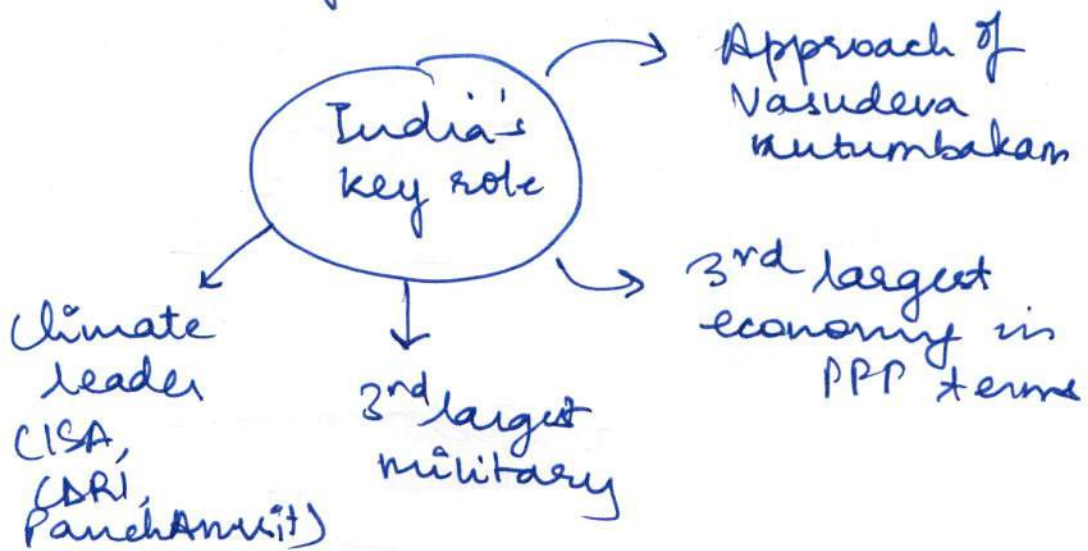 India's
key role
Approach of
Vasudeva
Kutumbakam
3rd largest
economy in
PPP terms
3rd largest
military
Climate
leader
(ISA,
CDRI,
PanchAmrit)